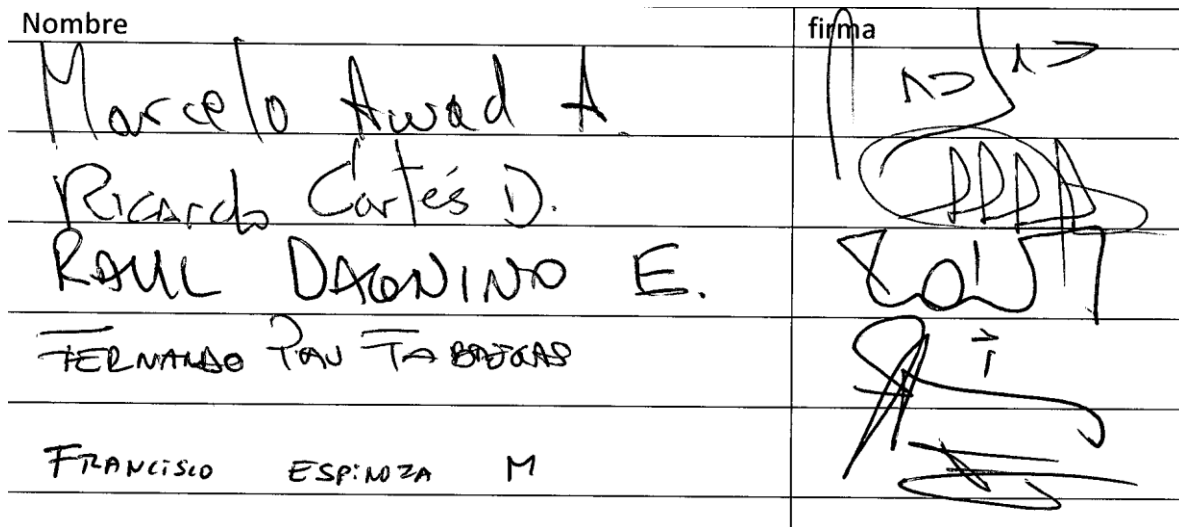 Nombre firma
Marcelo Awad A.
Ricardo Cortés D.
RAUL DAGNINO E.
FERNANDO
FRANCISCO ESPINOZA M